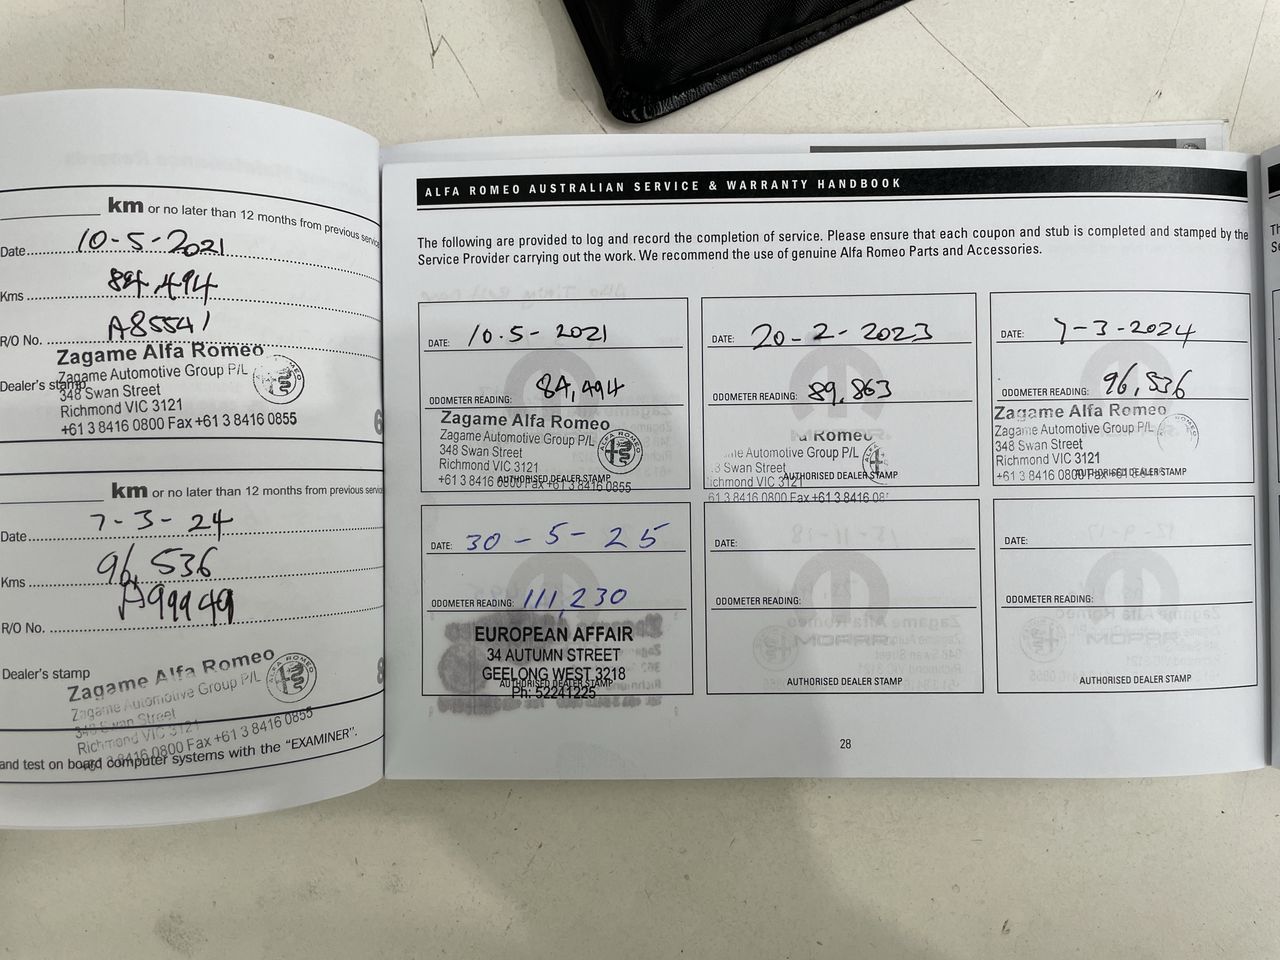 km or no later than 12 months from previous service
Date 10-5-2021
Kms 84,494
R/O No. A85541
Zagame Alfa Romeo
Zagame Automotive Group P/L
Dealer's stamp
348 Swan Street
Richmond VIC 3121
+61 3 8416 0800 Fax +61 3 8416 0855
6
km or no later than 12 months from previous service
Date 7-3-24
Kms 96,536
R/O No. A99949
Dealer's stamp
Zagame Alfa Romeo
Zagame Automotive Group P/L
348 Swan Street
Richmond VIC 3121
+61 3 8416 0800 Fax +61 3 8416 0855
8
and test on board computer systems with the "EXAMINER".
ALFA ROMEO AUSTRALIAN SERVICE & WARRANTY HANDBOOK
The following are provided to log and record the completion of service. Please ensure that each coupon and stub is completed and stamped by the
Service Provider carrying out the work. We recommend the use of genuine Alfa Romeo Parts and Accessories.
DATE: 10.5-2021
ODOMETER READING: 84,494
Zagame Alfa Romeo
Zagame Automotive Group P/L
348 Swan Street
Richmond VIC 3121
+61 3 8416 0800 Fax +61 3 8416 0855
AUTHORISED DEALER STAMP
DATE: 20-2-2023
ODOMETER READING: 89,863
Romeo
Automotive Group P/L
Swan Street
AUTHORISED DEALER STAMP
61 3 8416 0800 Fax +61 3 8416
DATE: 7-3-2024
ODOMETER READING: 96,536
Zagame Alfa Romeo
Zagame Automotive Group P/L
348 Swan Street
Richmond VIC 3121
+61 3 8416 080 Fax
AUTHORISED DEALER STAMP
DATE: 30-5-25
ODOMETER READING: 111,230
EUROPEAN AFFAIR
34 AUTUMN STREET
GEELONG WEST 3218
AUTHORISED DEALER STAMP
Ph: 52241225
DATE:
ODOMETER READING:
AUTHORISED DEALER STAMP
DATE:
ODOMETER READING:
AUTHORISED DEALER STAMP
28